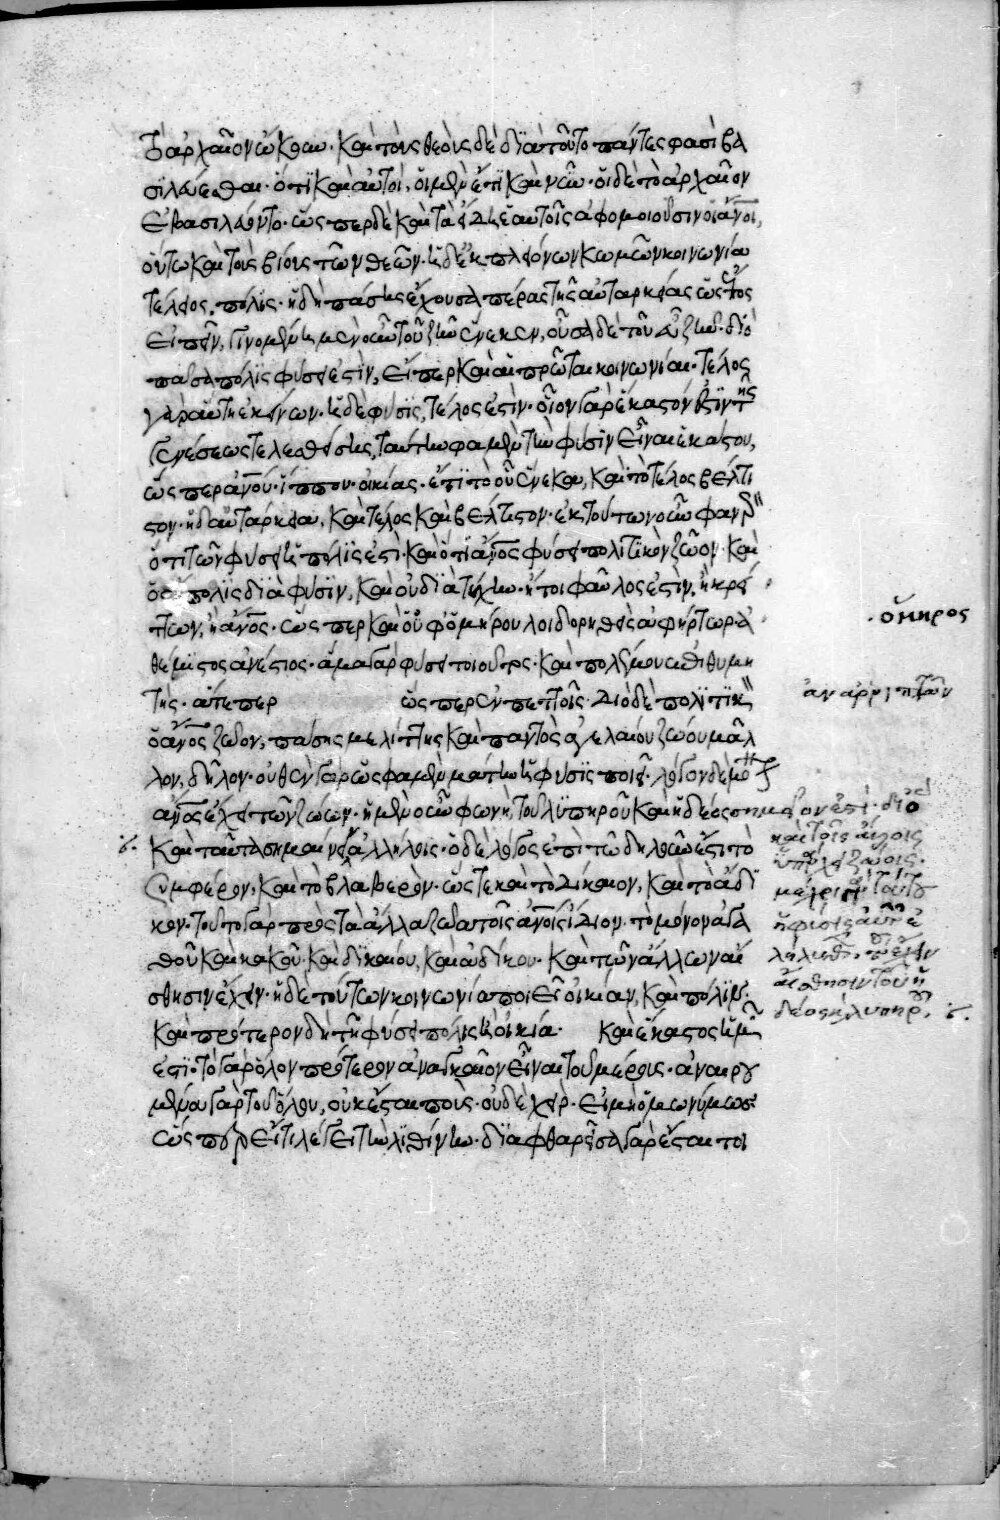 τὸ ἀρχαῖον ὤκουν. καὶ τοὺς θεοὺς δὲ διὰ τοῦτο πάντες φασὶ βα
σιλεύεσθαι. ὅτι καὶ αὐτοὶ, οἱ μὲν ἔτι καὶ νῦν. οἱ δὲ τὸ ἀρχαῖον
ἐβασιλεύοντο. ὥσπερ δὲ καὶ τὰ εἴδη ἑαυτοῖς ἀφομοιοῦσιν οἱ ἄνοι,
οὕτω καὶ τοὺς βίους τῶν θεῶν. ἡ δ' ἐκ πλειόνων κωμῶν κοινωνία
τέλειος, πόλις. ἤδη πάσης ἔχουσα πέρας τῆς αὐταρκείας ὡς ἔπος
εἰπεῖν, γινομένη μὲν οὖν τοῦ ζῆν ἕνεκεν, οὖσα δὲ τοῦ εὖ ζῆν. διὸ
πᾶσα πόλις φύσει ἐστὶν, εἴπερ καὶ αἱ πρῶται κοινωνίαι. τέλος
γὰρ αὕτη ἐκείνων. ἡ δὲ φύσις, τέλος ἐστὶν. οἷον γὰρ ἕκαστόν ἐστι τῆς
γενέσεως τελεσθείσης, ταύτην φαμὲν τὴν φύσιν εἶναι ἑκάστου,
ὥσπερ ἀνου. ἵππου. οἰκίας. ἔτι τὸ οὗ ἕνεκα, καὶ τὸ τέλος βέλτι
στον. ἡ δ' αὐτάρκεια, καὶ τέλος καὶ βέλτιστον. ἐκ τούτων οὖν φανερὸν
ὅτι τῶν φύσει ἡ πόλις ἐστὶ. καὶ ὅτι ἄνος φύσει πολιτικὸν ζῶον. καὶ
ὁ ἄπολις διὰ φύσιν, καὶ οὐ διὰ τύχην. ἤτοι φαῦλος ἐστὶν, ἢ κρεί
ττων, ἢ ἄνος. ὥσπερ καὶ ὁ ὑφ' ὁμήρου λοιδορηθεὶς ἀφρήτωρ ἀ
θέμιστος ἀνέστιος. ἅμα γὰρ φύσει τοιοῦτος. καὶ πολέμου ἐπιθυμη
τής. ἅτε περ ὥσπερ ἐν πετεινοῖς. διὸ δὲ πολιτικὸν
ὁ ἄνος ζῶον, πάσης μελίττης καὶ παντὸς ἀγελαίου ζώου μᾶλ
λον, δῆλον. οὐθὲν γὰρ ὡς φαμὲν μάτην ἡ φύσις ποιεῖ. λόγον δὲ μόνον
ἄνος ἔχει τῶν ζώων. ἡ μὲν οὖν φωνὴ, τοῦ λυπηροῦ καὶ ἡδέος σημεῖον ἐστὶ. διὸ
καὶ ταῦτα σημαίνειν ἀλλήλοις. ὁ δὲ λόγος ἐπὶ τῷ δηλοῦν ἐστι τὸ
συμφέρον, καὶ τὸ βλαβερὸν. ὥστε καὶ τὸ δίκαιον, καὶ τὸ ἄδι
κον. τοῦτο γὰρ πρὸς τὰ ἄλλα ζῶα τοῖς ἀνοις ἴδιον. τὸ μόνον ἀγα
θοῦ καὶ κακοῦ. καὶ δικαίου, καὶ ἀδίκου. καὶ τῶν ἄλλων αἴ
σθησιν ἔχειν. ἡ δὲ τούτων κοινωνία ποιεῖ οἰκίαν, καὶ πόλιν.
καὶ πρότερον δὴ τῇ φύσει πόλις ἢ οἰκία. καὶ ἕκαστος ἡμῶν
ἐστι. τὸ γὰρ ὅλον πρότερον ἀναγκαῖον εἶναι τοῦ μέρους. ἀναιρου
μένου γὰρ τοῦ ὅλου, οὐκ ἔσται πους. οὐδὲ χείρ. εἰ μὴ ὁμωνύμως
ὥσπερ εἴ τι λέγει τὴν λιθίνην. διαφθαρεῖσα γὰρ ἔσται τοι
ὅμηρος
ἀναρριπτῶν
καὶ τοῖς ἄλλοις
ὑπάρχει ζώοις.
μέχρι γὰρ τούτου
ἡ φύσις αὐτῶν ἐ
λήλυθεν. τοῦ ἔχειν
αἴσθησιν τοῦ ἡ
δέος καὶ λυπηροῦ.